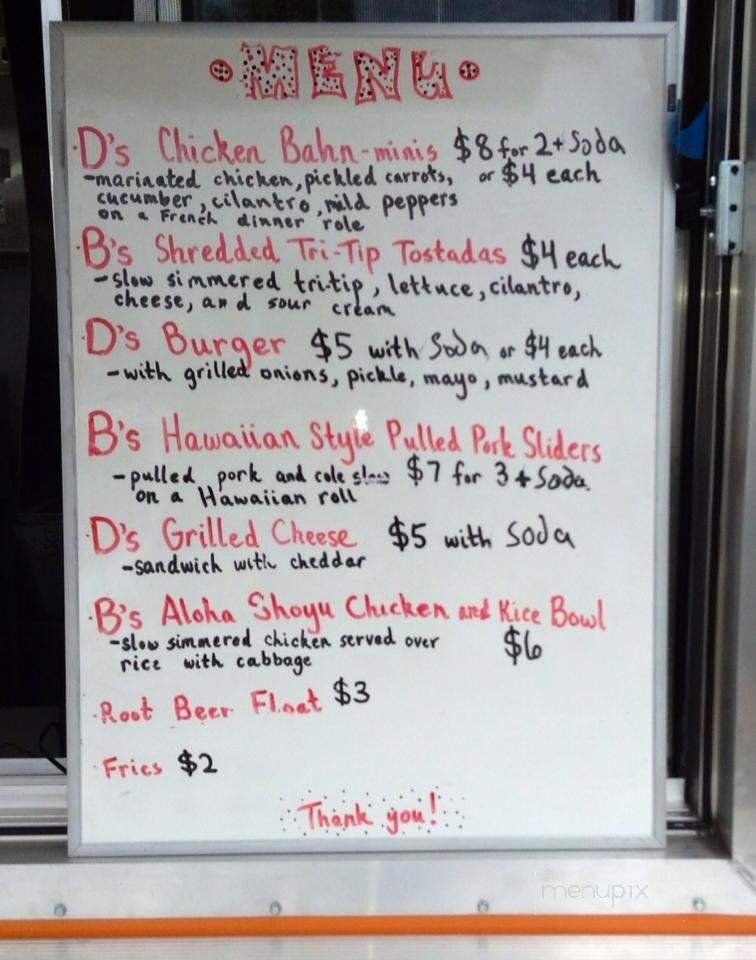 MENU
D's Chicken Bahn-minis $8 for 2 + Soda
-marinated chicken, pickled carrots, or $4 each
cucumber, cilantro, mild peppers
on a French dinner role
B's Shredded Tri-Tip Tostadas $4 each
-slow simmered tri-tip, lettuce, cilantro,
cheese, and sour cream
D's Burger $5 with Soda or $4 each
-with grilled onions, pickle, mayo, mustard
B's Hawaiian Style Pulled Pork Sliders
-pulled pork and cole slaw $7 for 3 + Soda
on a Hawaiian roll
D's Grilled Cheese $5 with Soda
-sandwich with cheddar
B's Aloha Shoyu Chicken and Rice Bowl
-slow simmered chicken served over $6
rice with cabbage
Root Beer Float $3
Fries $2
Thank you!
menupix